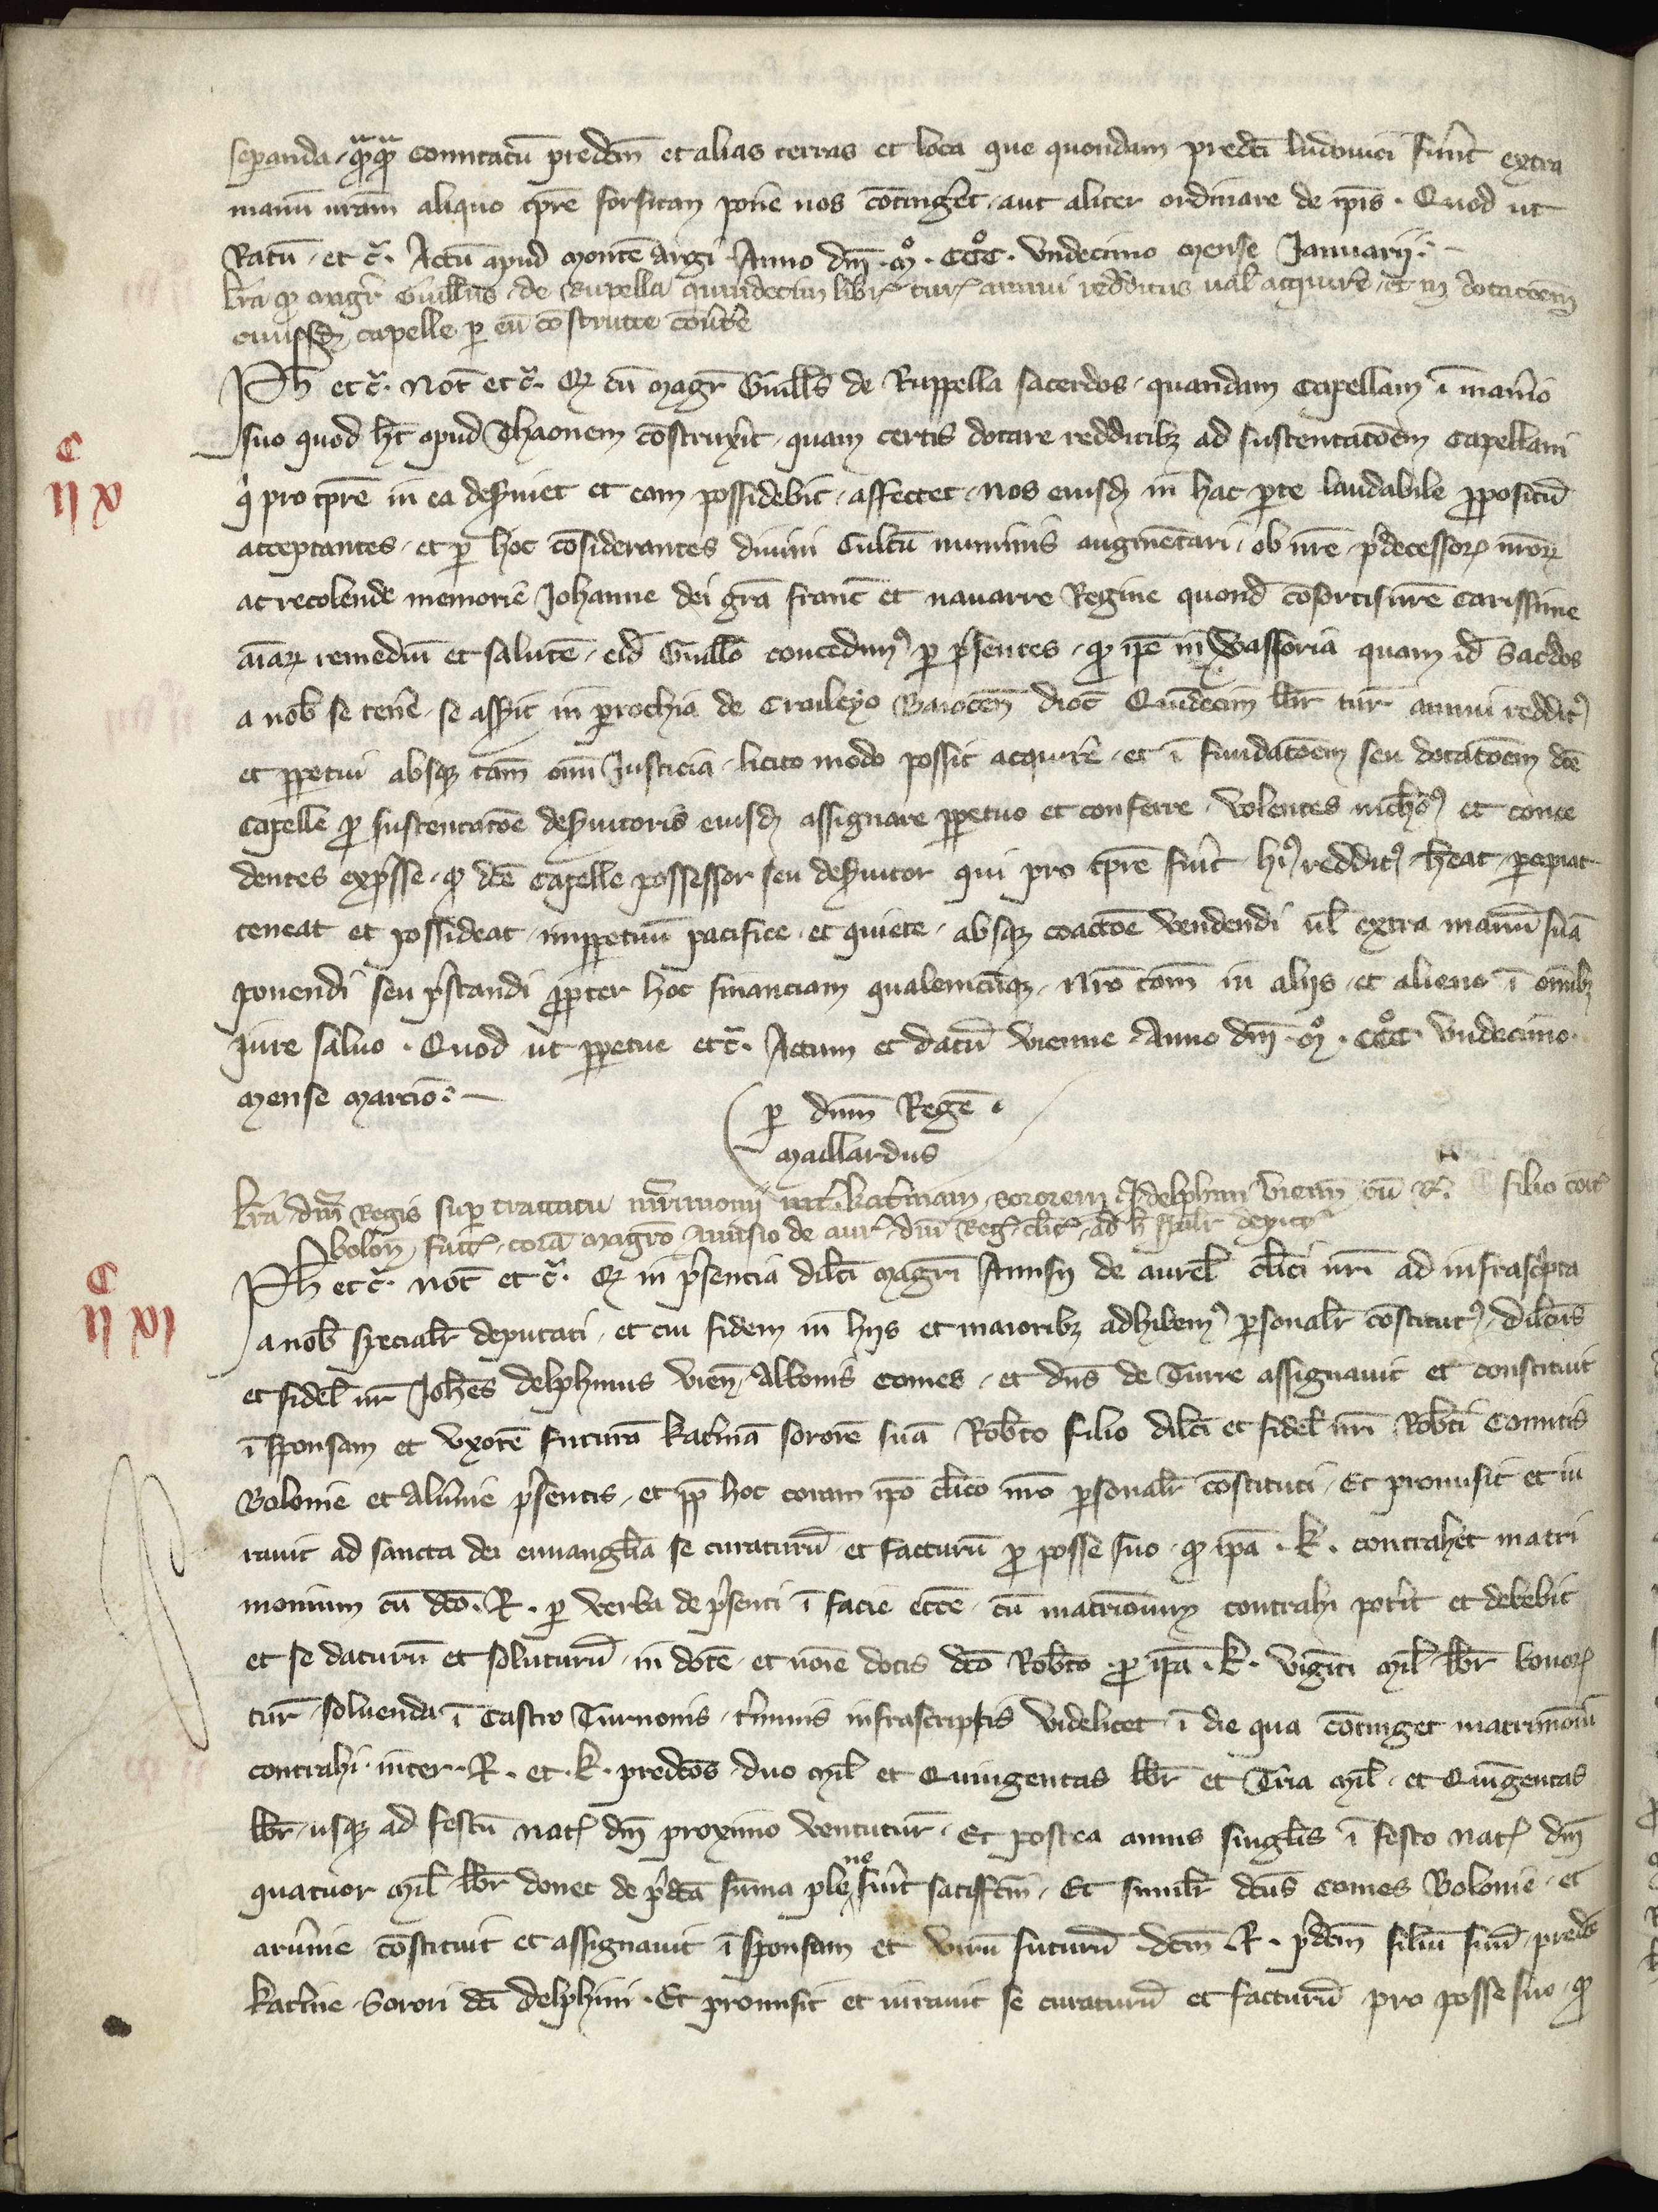 separanda. comitatum predictm et alias terras et loca que quondam predicti ludouici fuerint extra
manū nram aliquo tpre forsitan ponere nos cōtingeret, aut aliter ordinare de ipis. Quod ut
Ratū et cᵃ. Actū apud Montē Argi Anno dnī mº. CCCº. undecimo mense Januarij.
lrā qd magr Guillūs de Rupella quindecim libr tur annui redditus ual acquirere et in dotacōem
cuiusd capelle p eū cōstructe cōuertere
Ph et cᵃ. Not et cᵃ. Qd cū magr Guills de Ruppella sacerdos quandam Capellam ī manerio
suo quod ht apud Thaonem cōstruxerit quam certis dotare redditibz ad sustentatōem Capellani
qi pro tpre in ea deseruiet et eam possidebit affectet, nos eiusd in hac parte laudabile propositū
acceptantes et p hoc cōsiderantes diuini Cultū numinis augmētari, ob nre predecessor nror
ac recolende memorie Johanne dei grā franc et nauarre Regine quond cōsortis nre carissime
aīar remediū et salutē eid Guillo concedimus p presentes, qd ipe in vassoria quam id Sacdos
a nob se tenere se asserit in parochia de Croileyo Baiocen dioc Quīdecim lbr tur annui redditus
et perpetui absqz tam omi Justicia licito modo possit acquirere et ī fundatōem seu dotatōem dce
Capelle pro sustentatōe deseruitoris eiusd assignare perpetuo et conferre volentes nichō et conce
dentes expresse, qd dce Capelle possessor seu deseruitor qui pro tpre fuerit hi redditus heat percipiat
teneat et possideat imperpetuū pacifice et quiete, absqz coactōe vendendi ul extra manū suā
ponendi seu prestandi propter hoc financiam qualemcūqz. Nro tam in aliis et alieno ī omibz
jure saluo. Quod ut perpetue etcᵃ. Actum et datū vienne Anno dnī mº. CCCº. undecimo
mense marcio.
p dnm Regē
Maillardus
lrā dnī Regis super tractatu mrimonii int katerinam sororem delphini vienn cū R. filio comit
bolon fact corā magro Amisio de aur dnī Reg cleric ad h spalr deput
Ph et cᵃ. Not et cᵃ. Qd in presencia dilcī magri Amisij de aurel clici nri ad infrascripta
a nob specialr deputati, et cui fidem in hijs et maioribz adhibemus personalr cōstitutus dilcūs
et fidel nr Johēs delphinus vien Albonis comes et dns de Turre assignauit et constituit
ī sponsam et vxorē futurā katerinā sororē suā Robto filio dilcī et fidel nri Robti Comitis
Bolonie et Aluernie presentis et pp hoc coram ipo clico nro personalr cōstituti. Et promisit et iu
rauit ad sancta dei euuanglia se curaturū et facturū pro posse suo qd ipa . k. contrahet matri
monium cū dco . R. p verba de presenti ī facie eccē cū matrimoniu contrahi poterit et debebit
et se daturū et soluturū in dotē et noie dotis dco Robto pro ipa . k. viginti mil lbr bonor
tur soluenda ī Castro Turnonis terminis infrascriptis videlicet ī die qua cōtinget matrimoniū
contrahi inter . R. et . k. predcos duo mil et Quingentas lbr et Tria mil et Quīgentas
lbr usqz ad festū nat dnī proximo venturū. Et postea annis singlis ī festo nat dnī
quatuor mil lbr donec de predca suma plene fuerit satisfctm. Et similr dcūs Comes Bolonie et
aruernie cōstituit et assignauit ī sponsam et virū futurū dcm . R. predcm filiū suū predce
katerine sorori dci delphini. Et promisit et iurauit se curaturū et facturū pro posse suo qd